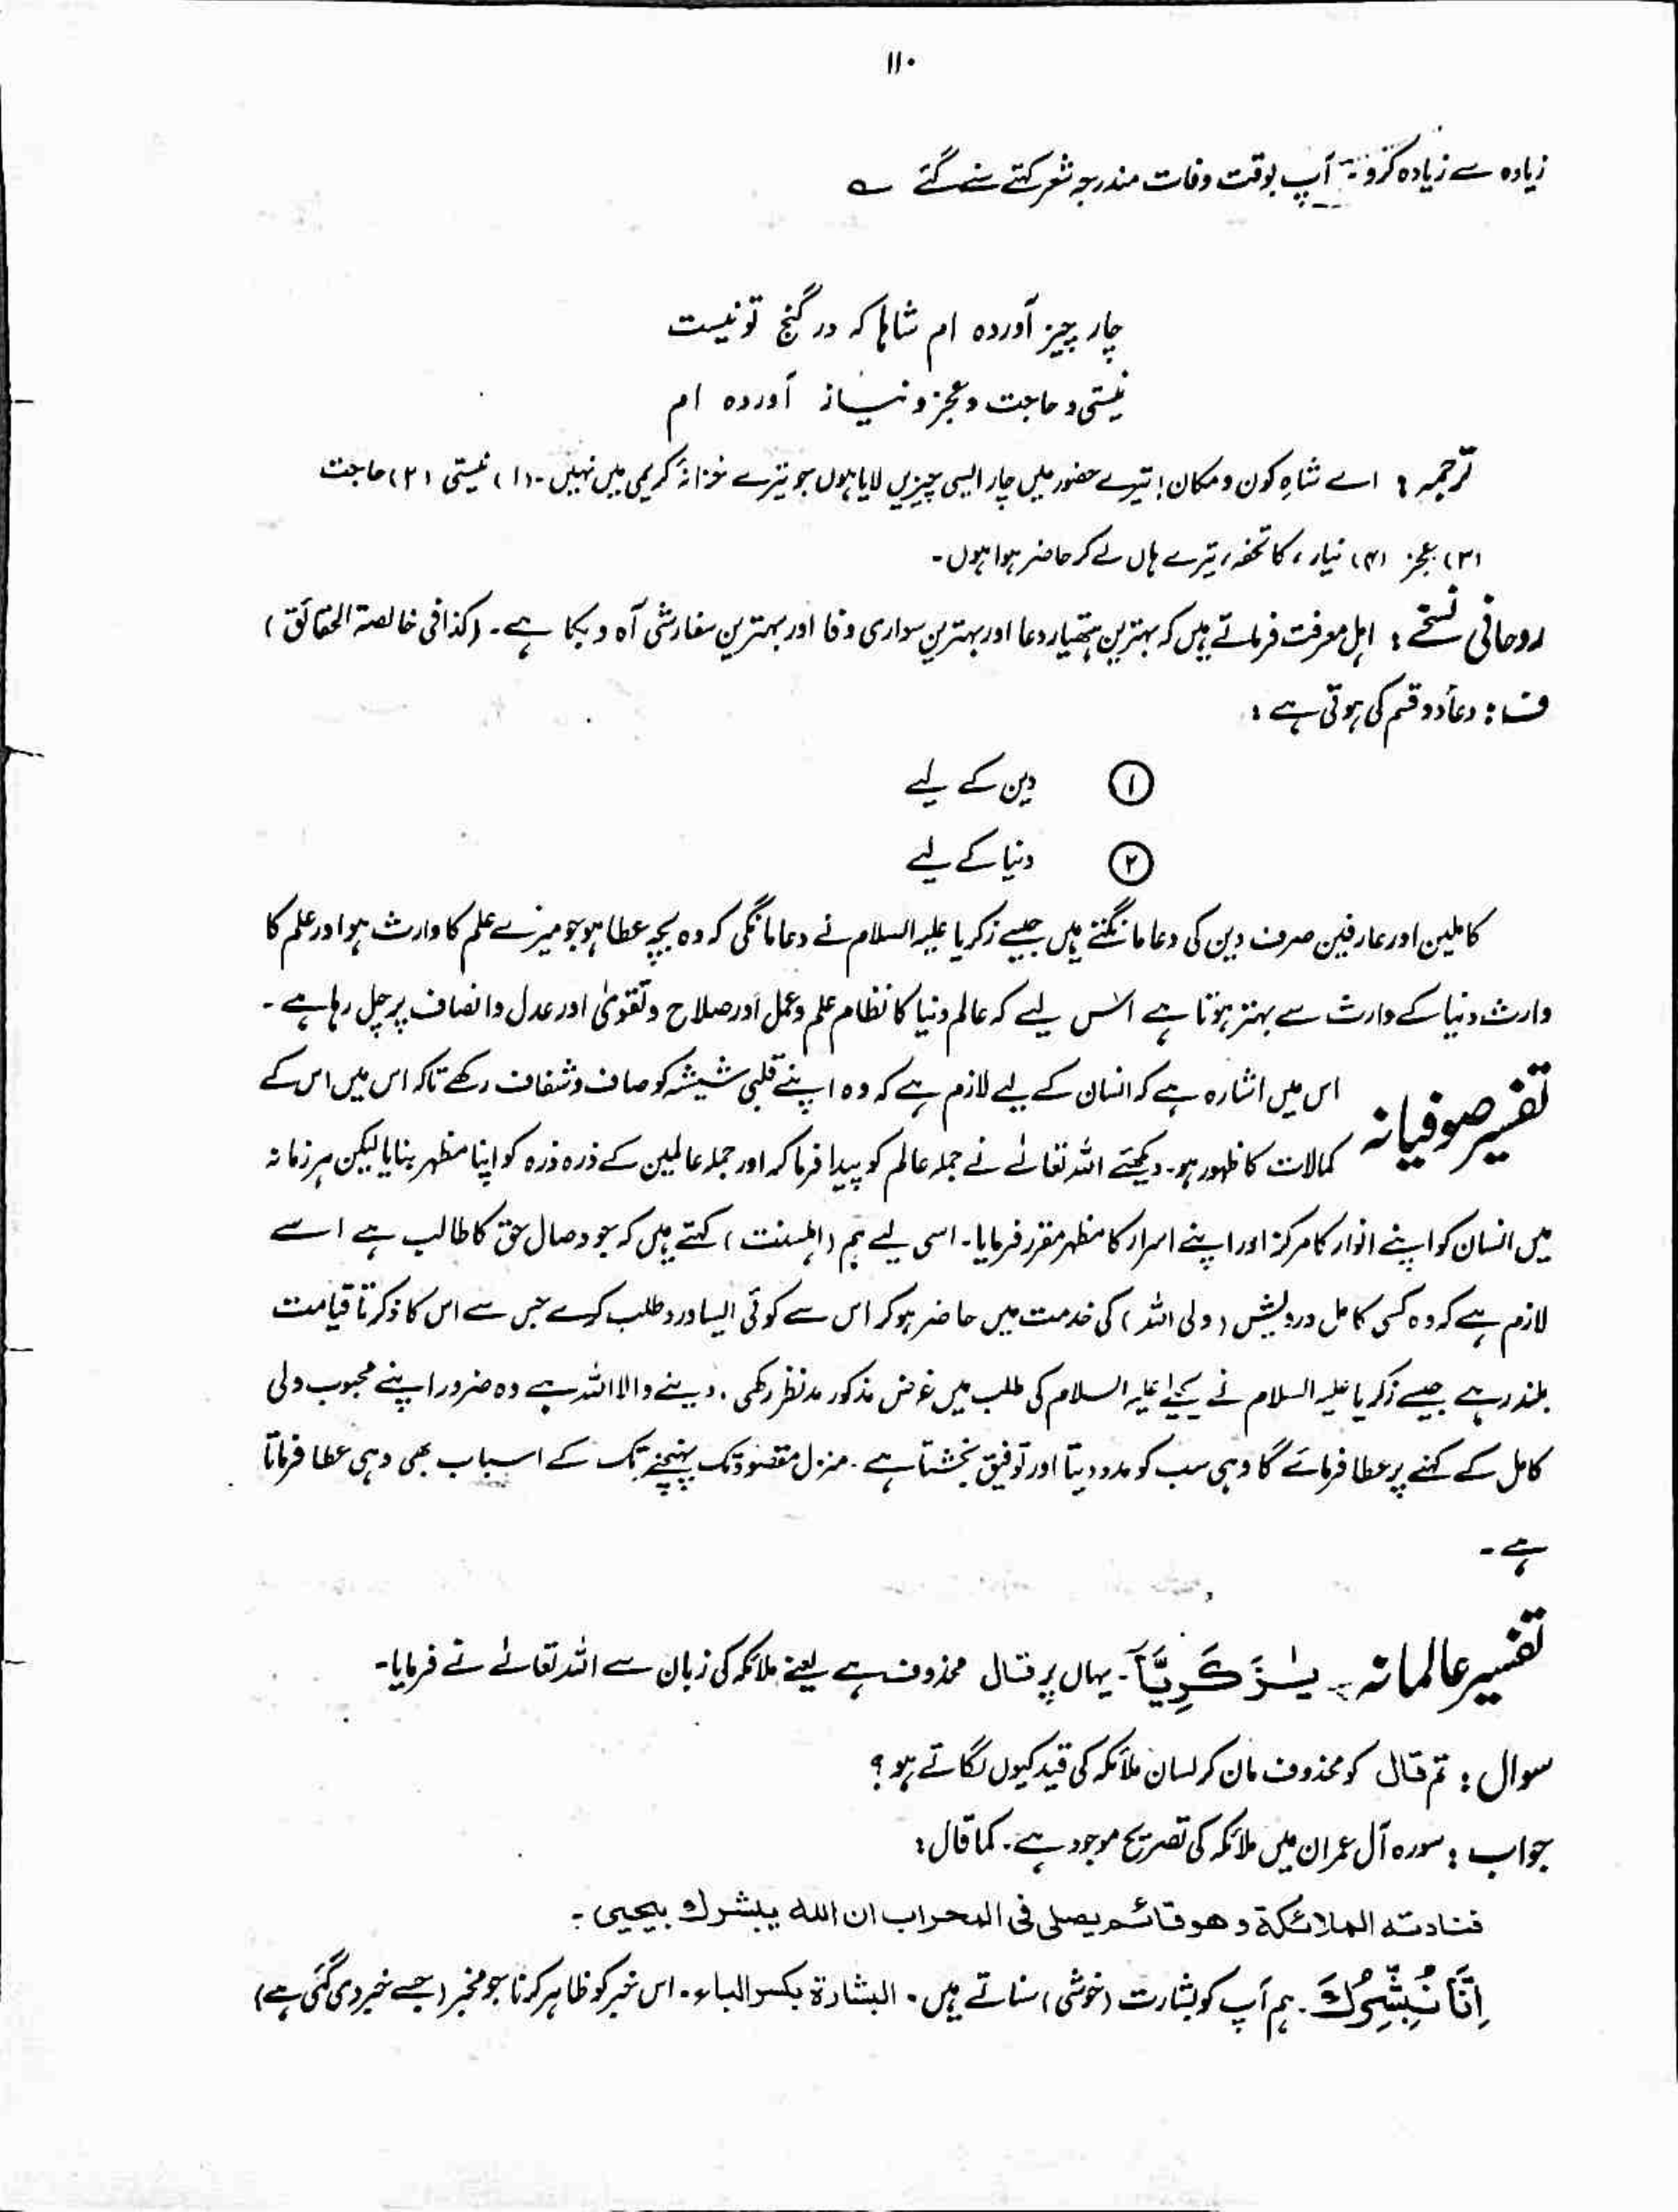 ۱۱۰
زیادہ سے زیادہ کرو ۔ آپ بوقت وفات مندرجہ شعر کہتے سنے گئے ؎
چار چیز آوردہ ام شاہا کہ در گنج تو نیست
نیستی و حاجت و عجز و نیاز آوردہ ام
ترجمہ : اے شاہِ کون و مکان! تیرے حضور میں چار ایسی چیزیں لایا ہوں جو تیرے خزانۂ کریمی میں نہیں۔ (۱) نیستی (۲) حاجت
(۳) عجز (۴) نیاز ، کا تحفہ ، تیرے ہاں لے کر حاضر ہوا ہوں۔
روحانی نسخے : اہل معرفت فرماتے ہیں کہ بہترین ہتھیار دعا اور بہترین سواری وفا اور بہترین سفارشی آہ و بکا ہے۔ (کذا فی خالصۃ الحقائق)
ف : دعا دو قسم کی ہوتی ہے :
① دین کے لیے
② دنیا کے لیے
کاملین اور عارفین صرف دین کی دعا مانگتے ہیں جیسے زکریا علیہ السلام نے دعا مانگی کہ وہ بچہ عطا ہو جو میرے علم کا وارث ہو اور علم کا
وارث دنیا کے وارث سے بہتر ہوتا ہے اس لیے کہ عالم دنیا کا نظام علم و عمل اور صلاح و تقویٰ اور عدل و انصاف پر چل رہا ہے ۔
تفسیر صوفیانہ اس میں اشارہ ہے کہ انسان کے لیے لازم ہے کہ وہ اپنے قلبی شیشہ کو صاف و شفاف رکھے تاکہ اس میں اس کے
کمالات کا ظہور ہو۔ دیکھئے اللہ تعالےٰ نے جملہ عالم کو پیدا فرما کر اور جملہ عالمین کے ذرہ ذرہ کو اپنا مظہر بنایا لیکن ہر زمانہ
میں انسان کو اپنے انوار کا مرکز اور اپنے اسرار کا مظہر مقرر فرمایا۔ اسی لیے ہم (اہلسنت) کہتے ہیں کہ جو وصال حق کا طالب ہے اسے
لازم ہے کہ وہ کسی کامل درویش (ولی اللہ) کی خدمت میں حاضر ہو کر اس سے کوئی ایسا ورد طلب کرے جس سے اس کا ذکر تا قیامت
بلند رہے جیسے زکریا علیہ السلام نے یحییٰ علیہ السلام کی طلب میں غرض مذکور مدنظر رکھی ۔ دینے والا اللہ ہے وہ ضرور اپنے محبوب ولی
کامل کے کہنے پر عطا فرمائے گا وہی سب کو مدد دیتا اور توفیق بخشتا ہے ۔ منزل مقصود تک پہنچنے تک کے اسباب بھی وہی عطا فرماتا
ہے ۔
تفسیر عالمانہ یٰزَکَرِیَّآ ۔ یہاں پر قال محذوف ہے یعنے ملائکہ کی زبان سے اللہ تعالےٰ نے فرمایا۔
سوال : تم قال کو محذوف مان کر لسان ملائکہ کی قید کیوں لگاتے ہو ؟
جواب : سورہ آل عمران میں ملائکہ کی تصریح موجود ہے ۔ کما قال :
فنادتہ الملائکة وھو قائم یصلی فی المحراب ان اللہ یبشرك بیحیی ۔
اِنَّا نُبَشِّرُكَ ۔ ہم آپ کو بشارت (خوشی) سناتے ہیں ۔ البشارة بکسر الباء ۔ اس خبر کو ظاہر کرنا جو مخبر (جسے خبر دی گئی ہے)